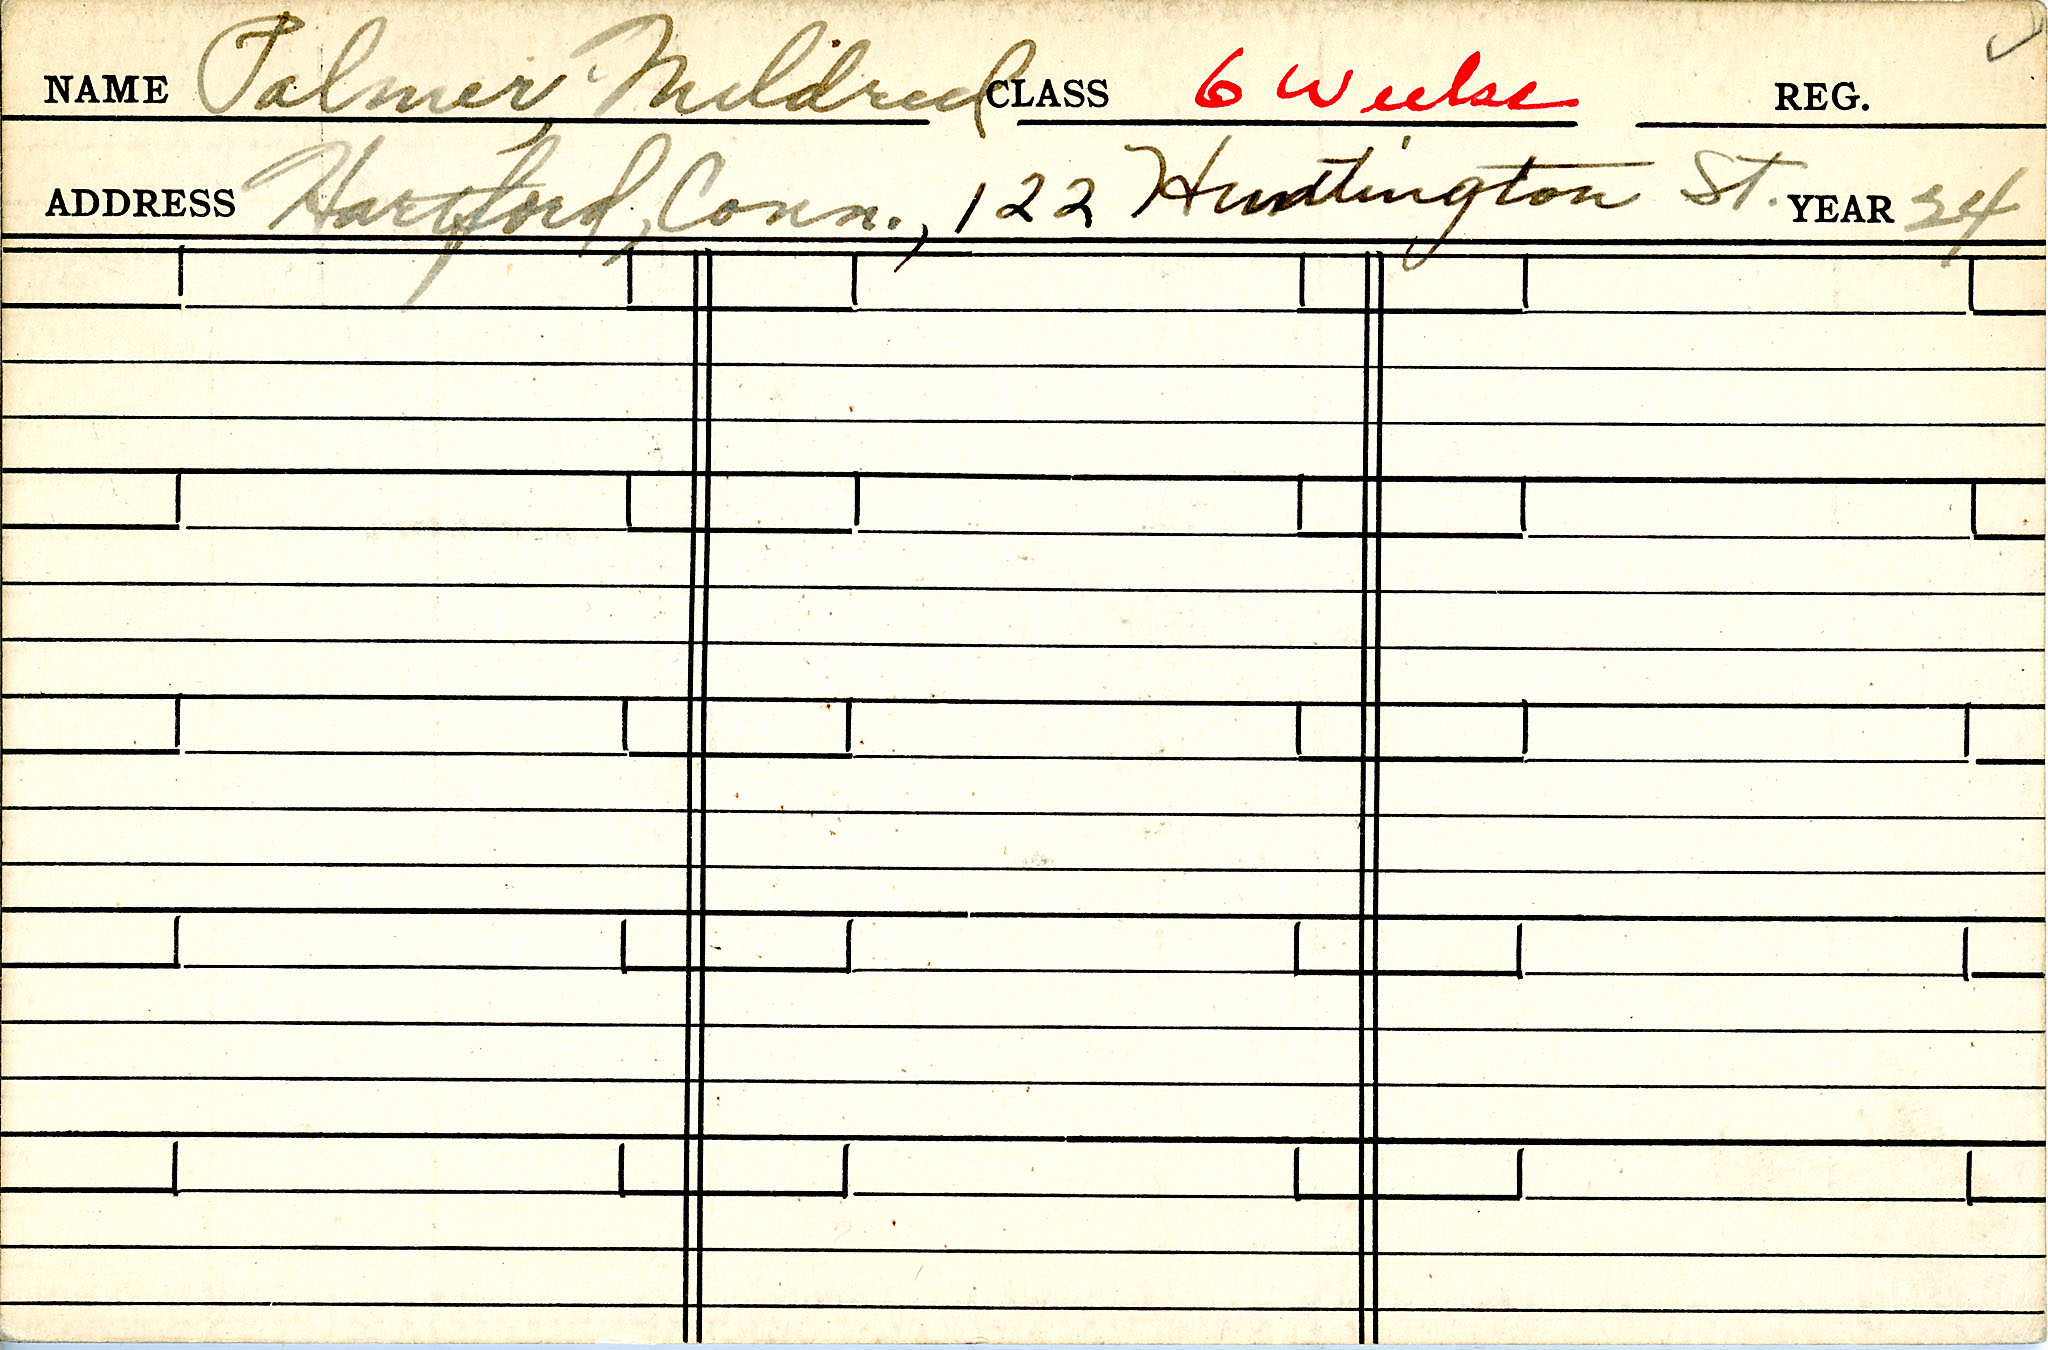 NAME Palmer Mildred CLASS 6 Weeks REG.
ADDRESS Hartford, Conn., 122 Huntington St. YEAR 24